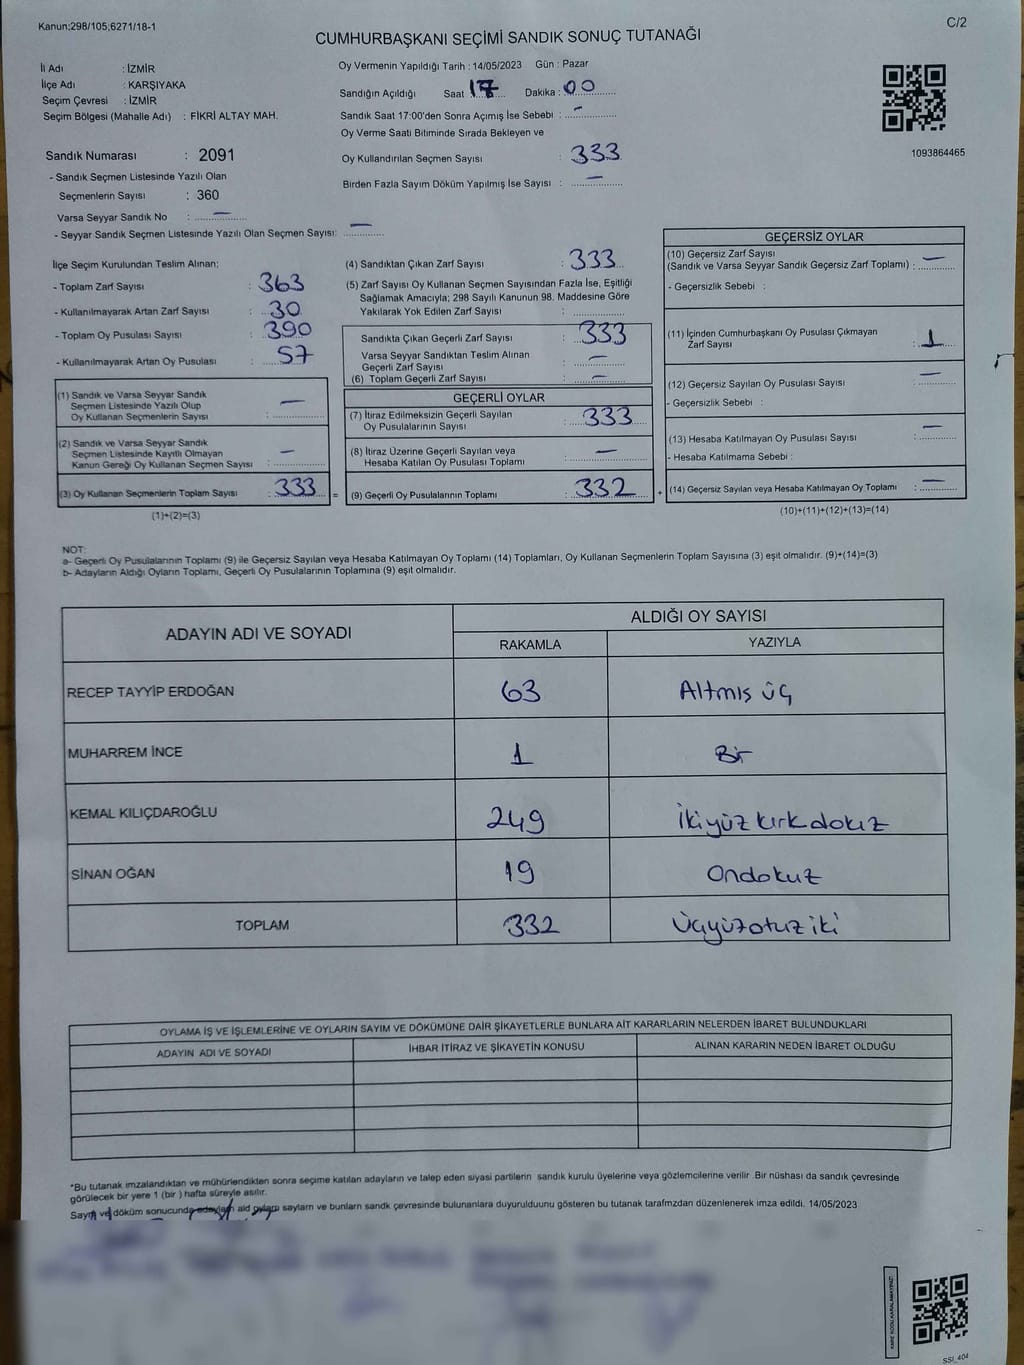 Kanun;298/105;6271/18-1
C/2
CUMHURBAŞKANI SEÇİMİ SANDIK SONUÇ TUTANAĞI
İl Adı : İZMİR
İlçe Adı : KARŞIYAKA
Seçim Çevresi : İZMİR
Seçim Bölgesi (Mahalle Adı) : FİKRİ ALTAY MAH.
Oy Vermenin Yapıldığı Tarih : 14/05/2023 Gün : Pazar
Sandığın Açıldığı Saat 17 Dakika : 00
Sandık Saat 17:00'den Sonra Açımış İse Sebebi : —
Oy Verme Saati Bitiminde Sırada Bekleyen ve
Oy Kullandırılan Seçmen Sayısı : 333
Birden Fazla Sayım Döküm Yapılmış İse Sayısı : —
1093864465
Sandık Numarası : 2091
- Sandık Seçmen Listesinde Yazılı Olan
Seçmenlerin Sayısı : 360
Varsa Seyyar Sandık No : —
- Seyyar Sandık Seçmen Listesinde Yazılı Olan Seçmen Sayısı: —
İlçe Seçim Kurulundan Teslim Alınan;
- Toplam Zarf Sayısı : 363
- Kullanılmayarak Artan Zarf Sayısı : 30
- Toplam Oy Pusulası Sayısı : 390
- Kullanılmayarak Artan Oy Pusulası : 57
(1) Sandık ve Varsa Seyyar Sandık
Seçmen Listesinde Yazılı Olup
Oy Kullanan Seçmenlerin Sayısı : —
(2) Sandık ve Varsa Seyyar Sandık
Seçmen Listesinde Kayıtlı Olmayan
Kanun Gereği Oy Kullanan Seçmen Sayısı : —
(3) Oy Kullanan Seçmenlerin Toplam Sayısı : 333 =
(1)+(2)=(3)
(4) Sandıktan Çıkan Zarf Sayısı : 333
(5) Zarf Sayısı Oy Kullanan Seçmen Sayısından Fazla İse, Eşitliği
Sağlamak Amacıyla; 298 Sayılı Kanunun 98. Maddesine Göre
Yakılarak Yok Edilen Zarf Sayısı :
Sandıkta Çıkan Geçerli Zarf Sayısı : 333
Varsa Seyyar Sandıktan Teslim Alınan
Geçerli Zarf Sayısı : —
(6) Toplam Geçerli Zarf Sayısı : —
GEÇERLİ OYLAR
(7) İtiraz Edilmeksizin Geçerli Sayılan
Oy Pusulalarının Sayısı : 333
(8) İtiraz Üzerine Geçerli Sayılan veya
Hesaba Katılan Oy Pusulası Toplamı : —
(9) Geçerli Oy Pusulalarının Toplamı : 332 +
GEÇERSİZ OYLAR
(10) Geçersiz Zarf Sayısı
(Sandık ve Varsa Seyyar Sandık Geçersiz Zarf Toplamı) : —
- Geçersizlik Sebebi :
(11) İçinden Cumhurbaşkanı Oy Pusulası Çıkmayan
Zarf Sayısı : 1
(12) Geçersiz Sayılan Oy Pusulası Sayısı : —
- Geçersizlik Sebebi :
(13) Hesaba Katılmayan Oy Pusulası Sayısı : —
- Hesaba Katılmama Sebebi :
(14) Geçersiz Sayılan veya Hesaba Katılmayan Oy Toplamı : —
(10)+(11)+(12)+(13)=(14)
NOT:
a- Geçerli Oy Pusulalarının Toplamı (9) ile Geçersiz Sayılan veya Hesaba Katılmayan Oy Toplamı (14) Toplamları, Oy Kullanan Seçmenlerin Toplam Sayısına (3) eşit olmalıdır. (9)+(14)=(3)
b- Adayların Aldığı Oyların Toplamı, Geçerli Oy Pusulalarının Toplamına (9) eşit olmalıdır.
ADAYIN ADI VE SOYADI ALDIĞI OY SAYISI
RAKAMLA YAZIYLA
RECEP TAYYİP ERDOĞAN 63 Altmış üç
MUHARREM İNCE 1 Bir
KEMAL KILIÇDAROĞLU 249 İkiyüz kırk dokuz
SİNAN OĞAN 19 Ondokuz
TOPLAM 332 Üçyüzotuz iki
OYLAMA İŞ VE İŞLEMLERİNE VE OYLARIN SAYIM VE DÖKÜMÜNE DAİR ŞİKAYETLERLE BUNLARA AİT KARARLARIN NELERDEN İBARET BULUNDUKLARI
ADAYIN ADI VE SOYADI İHBAR İTİRAZ VE ŞİKAYETİN KONUSU ALINAN KARARIN NEDEN İBARET OLDUĞU
*Bu tutanak imzalandıktan ve mühürlendikten sonra seçime katılan adayların ve talep eden siyasi partilerin sandık kurulu üyelerine veya gözlemcilerine verilir. Bir nüshası da sandık çevresinde
görülecek bir yere 1 (bir ) hafta süreyle asılır.
Sayım ve döküm sonucunda adayların ald oyların saylam ve bunların sandk çevresinde bulunanlara duyurulduunu gösteren bu tutanak tarafmzdan düzenlenerek imza edildi. 14/05/2023
SSI_404